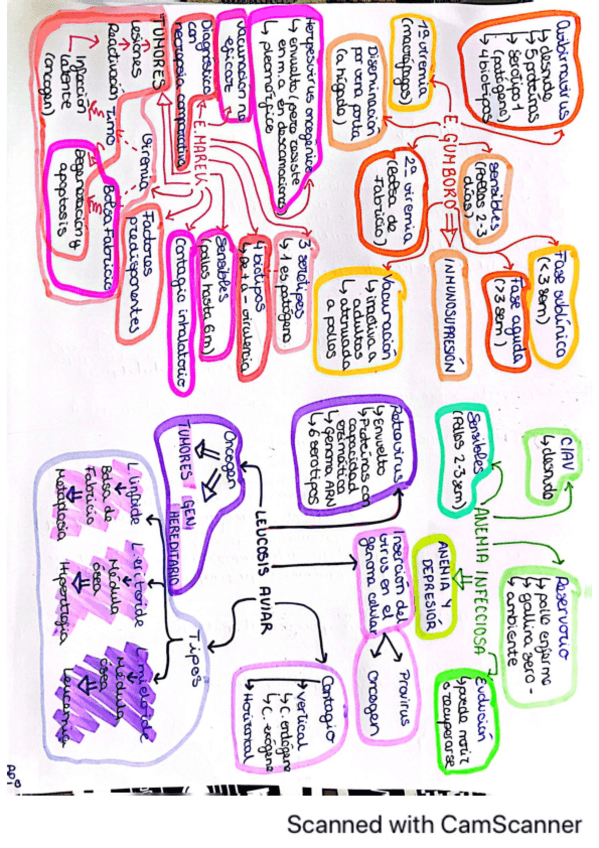 Avibirnavirus
↳ desnudo
↳ 5 proteínas
↳ serotipo 1
(patógeno)
↳ 4 biotipos
1ª viremia
(macrófagos)
E. GUMBORO
sensibles
(Pollos 2-3
días)
Fase subclínica
(<3 sem)
Fase aguda
(>3 sem)
INMUNOSUPRESIÓN
Diseminación
por vena porta
(a hígado)
2ª viremia
(Bolsa de
Fabricio)
Vacunación
↳ inactiva a
adultos
↳ atenuada
a pollos
Herpesvirus oncogénico
↳ envuelto (pero resiste
en m.a. en descamaciones)
↳ pleomórfico
Vacunación no
eficaz
Diagnóstico
con
necropsia comparativa
E. MAREK
3 serotipos
↳ 1 es patógeno
4 biotipos
↳ virulencia
Sensibles
(pollos hasta 6m)
Contagio inhalatorio
Factores
predisponentes
TUMORES
Lesiones
Reactivación
Infección
latente
(oncogen)
Viremia
Timo
Bolsa Fabricio
Degeneración y
apoptosis
CIAV
↳ desnudo
Reservorio
↳ pollo enfermo
↳ gallina sero-
↳ ambiente
Sensibles
(Pollos 2-3 sem)
ANEMIA INFECCIOSA
ANEMIA Y
DEPRESIÓN
Evolución
↳ puede morir
o recuperarse
Retrovirus
↳ Envuelto
↳ Proteínas con
capacidad
enzimática
↳ genoma ARN
↳ 6 serotipos
Inserción del
virus en el
genoma celular
Provirus
Oncogen
LEUCOSIS AVIAR
Oncogen
TUMORES
GEN
HEREDITARIO
Contagio
↳ vertical
↳ C. endógeno
↳ C. exógeno
↳ Horizontal
Tipos
L. linfoide
Bolsa de
Fabricio
Metaplasia
L. eritroide
Médula
ósea
Hipertrofia
L. mieloide
Médula
ósea
Leucemia
Scanned with CamScanner